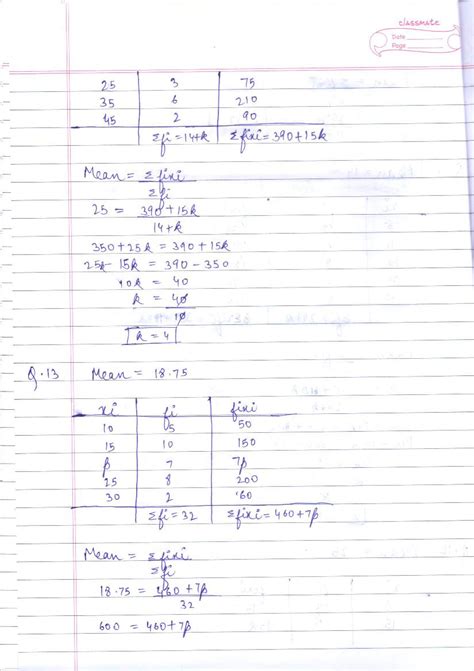 classmate
Date
Page
25 3 75
35 6 210
45 2 90
Σfi = 14+k Σfixi = 390+15k
Mean = Σfixi
Σfi
25 = 390+15k
14+k
350+25k = 390+15k
25k-15k = 390-350
10k = 40
k = 40
10
k = 4
Q.13 Mean = 18.75
xi fi fixi
10 5 50
15 10 150
p 7 7p
25 8 200
30 2 60
Σfi = 32 Σfixi = 460+7p
Mean = Σfixi
Σfi
18.75 = 460+7p
32
600 = 460+7p